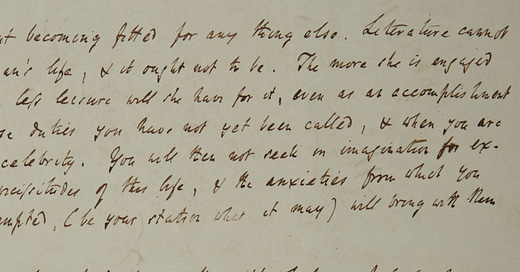 becoming fitted for any thing else. Literature cannot
an's life, & it ought not to be. The more she is engaged
less leisure will she have for it, even as an accomplishment
duties you have not yet been called, & when you are
celebrity. You will then not seek in imagination for ex-
vicissitudes of this life, & the anxieties from which you
empted, (be your station what it may) will bring with them